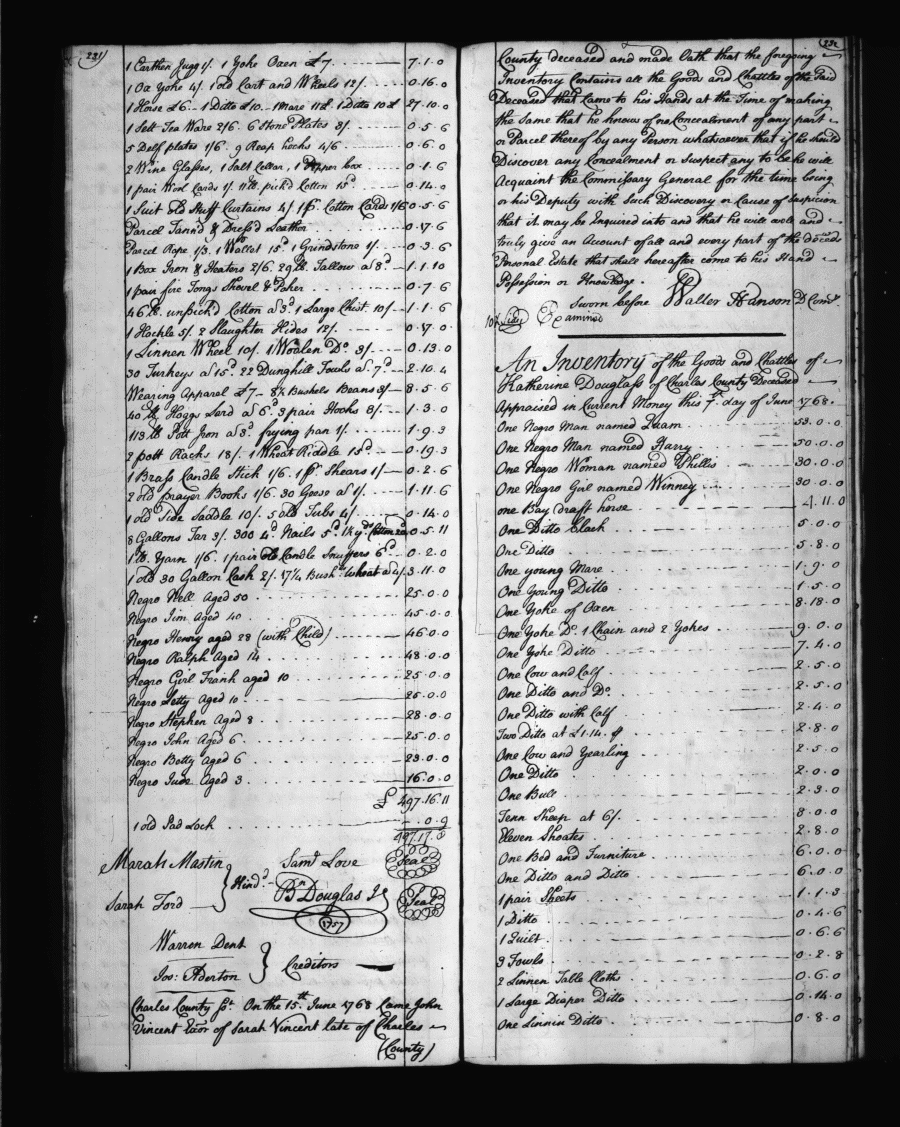 221
1 Earthen Jugg 1/. 1 Yoke Oxen £7 7.1.0
1 Ox Yoke 4/. 1 old Cart and Wheels 12/. 0.16.0
1 Horse £6 1 Ditto £10. 1 Mare 11£. 1 Ditto 10£ 27.10.0
1 Sett Tea Ware 2/6. 6 Stone Plates 3/. 0.5.6
5 Delf plates 1/6. 9 Reap hooks 4/6 0.6.0
2 Wine Glasses, 1 Salt Cellar, 1 Pepper box 0.1.6
1 pair Wool Cards 1/. 11 lb. pick'd Cotton 15d 0.14.0
1 Suit old Stuff Curtains 4/ 1 pr. Cotton Cards 1/6 0.5.6
Parcel Tann'd & Dress'd Leather 0.17.6
Parcel Rope 1/3. 1 Wallet 15d. 1 Grindstone 1/. 0.3.6
1 Box Iron & Heaters 2/6. 29 lb. Tallow a 8d 1.1.10
1 pair fire Tongs Shovel & Poker 0.7.6
46 lb. unpick'd Cotton a 3d. 1 Large Chest 10/ 1.1.6
1 Hackle 5/. 2 Slaughter Hides 12/. 0.17.0
1 Linnen Wheel 10/. 1 Woolen Do. 3/. 0.13.0
30 Turkeys a 15d. 22 Dunghill Fowls a 7d 2.10.4
Wearing Apparel £7 8½ Bushels Beans 3/ 8.5.6
40 lb. Hoggs Lard a 6d. 3 pair Hooks 3/. 1.3.0
113 lb Pott Iron a 3d. frying pan 1/. 1.9.3
2 pott Racks 18/. 1 Wheat Riddle 15d 0.19.3
1 Brass Candle Stick 1/6. 1 pr. Shears 1/ 0.2.6
2 old prayer Books 1/6. 30 Geese a 1/. 1.11.6
1 old Side Saddle 10/. 5 old Tubs 4/ 0.14.0
8 Gallons Tar 3/. 300 4d. Nails 5d. 1¼ yd. Cotton 0.5.11
1 lb. Yarn 1/6. 1 pair old Candle Snuffers 6d 0.2.0
1 old 30 Gallon Cask 2/. 17¼ Bushs. Wheat a 4/. 3.11.0
Negro Nell Aged 50 25.0.0
Negro Jim Aged 40 45.0.0
Negro Henny aged 28 (with Child) 46.0.0
Negro Ralph Aged 14 48.0.0
Negro Girl Frank aged 10 25.0.0
Negro Letty Aged 10 26.0.0
Negro Stephen Aged 8 28.0.0
Negro John Aged 6 25.0.0
Negro Betty Aged 6 23.0.0
Negro Jude Aged 3 16.0.0
£ 497.16.11
1 old Pad Lock 0.9
497.17.8
Marah Mastin Saml. Love Seal
Kind.
Sarah Ford Bn Douglas Jr Seal
1757
Warren Dent
Creditors
Jos: Aderton
Charles County Sct. On the 15th. June 1768 Came John
Vincent Exor. of Sarah Vincent late of Charles
(County)
222
County deceased and made Oath that the foregoing
Inventory Contains all the Goods and Chattles of the Said
Deceased that Came to his Hands at the Time of making
the Same that he knows of no Concealment of any part
or Parcel thereof by any Person whatsoever that if he should
Discover any Concealment or Suspect any to be he will
Acquaint the Commissary General for the time being
or his Deputy with Such Discovery or Cause of Suspicion
that it may be Inquired into and that he will well and
truly give an Account of all and every part of the deceds
Personal Estate that shall hereafter come to his Hand
Possession or Knowledge.
Sworn before Walter Hanson D Comry
Examined
An Inventory of the Goods and Chattles of
Katherine Douglass of Charles County Deceased
Appraised in Current Money this 7th. day of June 1768.
One Negro Man named Quam 53.0.0
One Negro Man named Harry 50.0.0
One Negro Woman named Phillis 30.0.0
One Negro Girl named Winney 30.0.0
one Bay draft horse 4.11.0
One Ditto black 5.0.0
One Ditto 5.8.0
One young Mare 1.9.0
One Young Ditto 1.5.0
One Yoke of Oxen 8.18.0
One Yoke Do. 1 Chain and 2 Yokes 9.0.0
One Yoke Ditto 7.4.0
One Cow and Calf 2.5.0
One Ditto and Do. 2.5.0
One Ditto with Calf 2.4.0
Two Ditto at £1.14. 2.8.0
One Cow and Yearling 2.5.0
One Ditto 2.0.0
One Bull 2.3.0
Tenn Sheep at 6/. 8.0.0
Eleven Shoates 2.8.0
One Bed and Furniture 6.0.0
One Ditto and Ditto 6.0.0
1 pair Sheets 1.1.3
1 Ditto 0.4.6
1 Quilt 0.6.6
3 Fowls 0.2.8
2 Linnen Table Cloths 0.6.0
1 Large Diaper Ditto 0.14.0
One Linnin Ditto 0.8.0